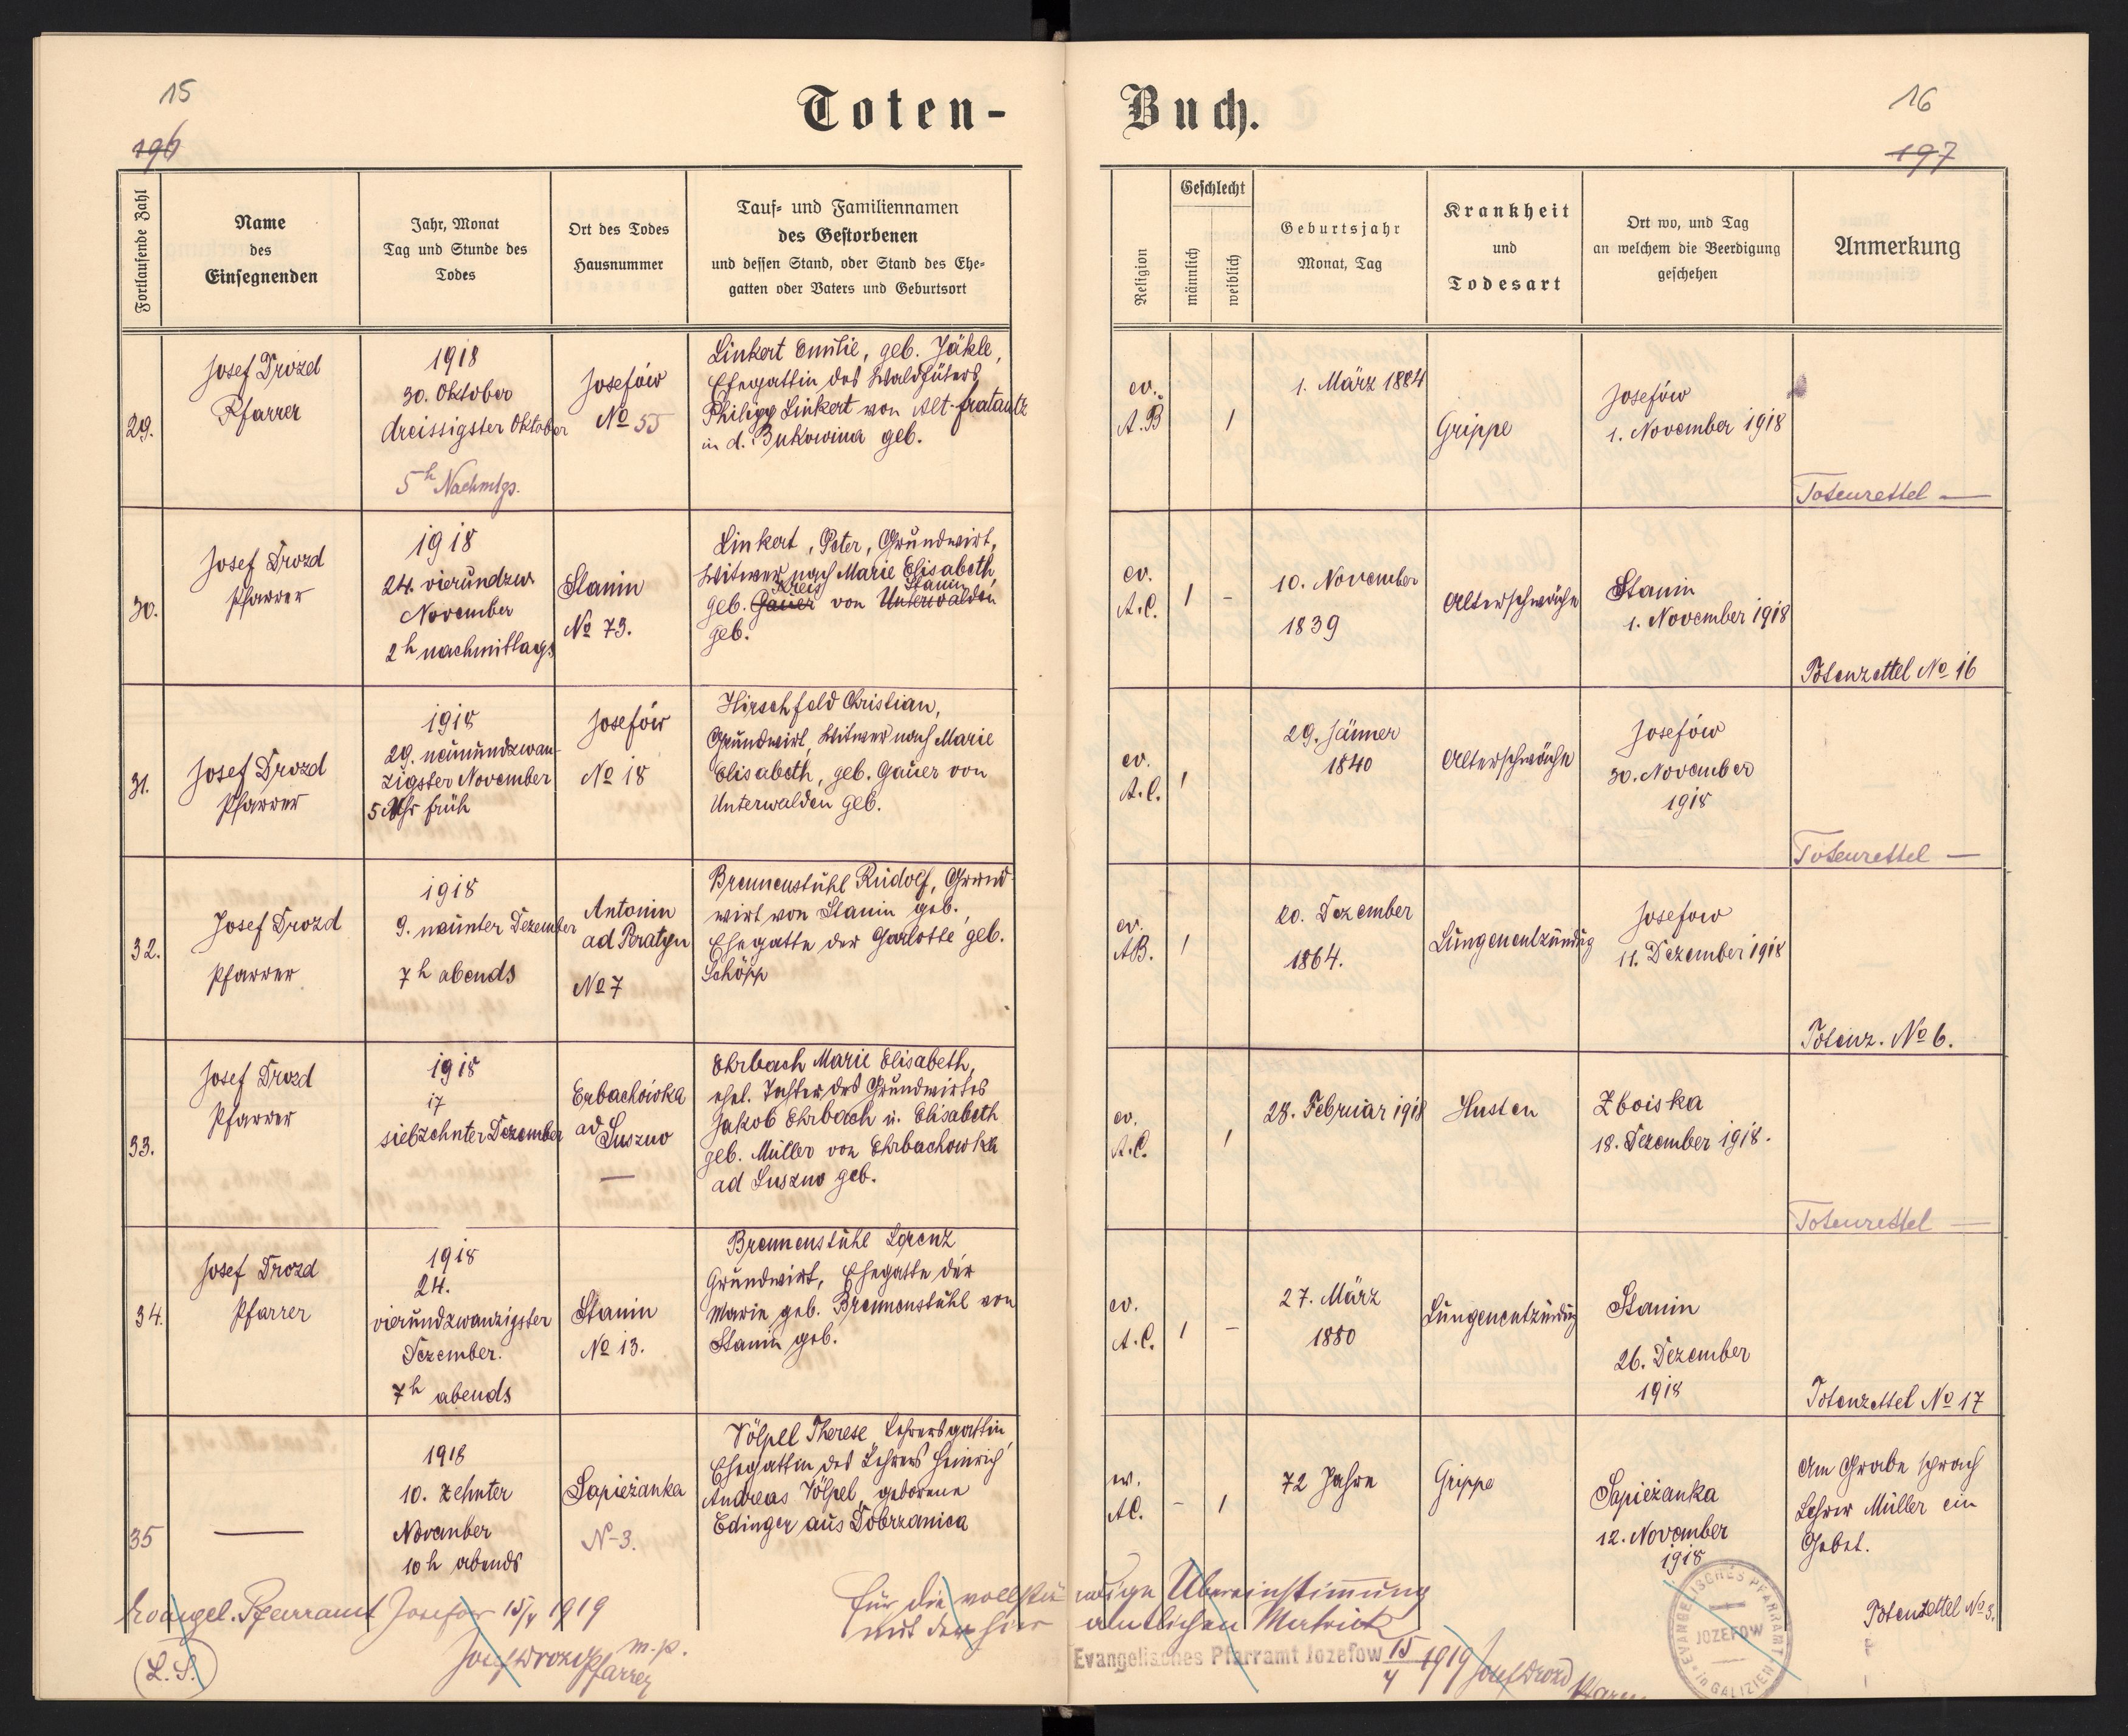 15
196
Toten-
Fortlaufende Zahl
Name
des
Einsegnenden
Jahr, Monat
Tag und Stunde des
Todes
Ort des Todes
Hausnummer
Tauf- und Familiennamen
des Gestorbenen
und dessen Stand, oder Stand des Ehe-
gatten oder Vaters und Geburtsort
29.
Josef Drozd
Pfarrer
1918
30. Oktober
dreissigster Oktober
5h Nachmtgs.
Josefów
No 55
Linkert Emilie, geb. Jäkle,
Ehegattin des Waldhüters
Philipp Linkert von Alt-fratautz
in d. Bukowina geb.
30.
Josef Drozd
Pfarrer
1918
24. vierundzw.
November
2h nachmittags
Stanin
No 73.
Linkert, Peter, Grundwirt,
Witwer nach Marie Elisabeth,
Kreis Stanin
geb. Gauer von Unterwalden
geb.
31.
Josef Drozd
Pfarrer
1918
29. neunundzwan-
zigster November
5 Uhr früh
Josefów
No 18
Hirschfeld Christian,
Grundwirt, Witwer nach Marie
Elisabeth, geb. Gauer von
Unterwalden geb.
32.
Josef Drozd
Pfarrer
1918
9. neunter Dezember
7h abends
Antonin
ad Peratyn
No 7
Brennenstuhl Rudolf, Grund-
wirt von Stanin geb.,
Ehegatte der Charlotte geb.
Schöpp
33.
Josef Drozd
Pfarrer
1918
17
siebzehnter Dezember
Erbachówka
ad Suszno
—
Ehrbach Marie Elisabeth,
ehel. Tochter des Grundwirtes
Jakob Ehrbach u. Elisabeth
geb. Müller von Ehrbachowka
ad Suszno geb.
34.
Josef Drozd
Pfarrer
1918
24.
vierundzwanzigster
Dezember.
7h abends
Stanin
No 13.
Brennenstuhl Lorenz
Grundwirt, Ehegatte der
Marie geb. Brennenstuhl von
Stanin geb.
35
—
1918
10. zehnter
November
10h abends
Sapieżanka
N-3.
Völpel Therese Lehrersgattin,
Ehegattin des Lehrers Heinrich
Andreas Völpel, geborene
Edinger aus Dobrzanica
Evangel. Pfarramt Josefow 15/4 1919
Josef Drozd Pfarrer m.p.
(L.S.)
16
197
Buch.
Religion
Geschlecht
männlich
weiblich
Geburtsjahr
Monat, Tag
Krankheit
und
Todesart
Ort wo, und Tag
an welchem die Beerdigung
geschehen
Anmerkung
ev.
A.B
1
1. März 1884
Grippe
Josefów
1. November 1918
Totenzettel —
ev.
A.C.
1 -
10. November
1839
Altersschwäche
Stanin
1. November 1918
Totenzettel No 16
ev.
A.C.
1
29. Jänner
1840
Altersschwäche
Josefów
30. November
1918
Totenzettel —
ev.
AB.
1
20. Dezember
1864.
Lungenentzündung
Josefow
11. Dezember 1918
Totenz. No 6.
ev.
A.C.
1
28. Februar 1918
Husten
Zboiska
18. Dezember 1918.
Totenzettel —
ev.
A.C.
1 -
27. März
1880
Lungenentzündung
Stanin
26. Dezember
1918
Totenzettel No 17
ev.
AC.
- 1
72 Jahre
Grippe
Sapieżanka
12. November
1918
Am Grabe sprach
Lehrer Müller ein
Gebet.
Totenzettel No 3.
Für die vollständige Übereinstimmung
mit der hier amtlichen Matrick
Evangelisches Pfarramt Jozefow 15/4 1919 Josef Drozd
EVANGELISCHES PFARRAMT
JOZEFOW
in GALIZIEN